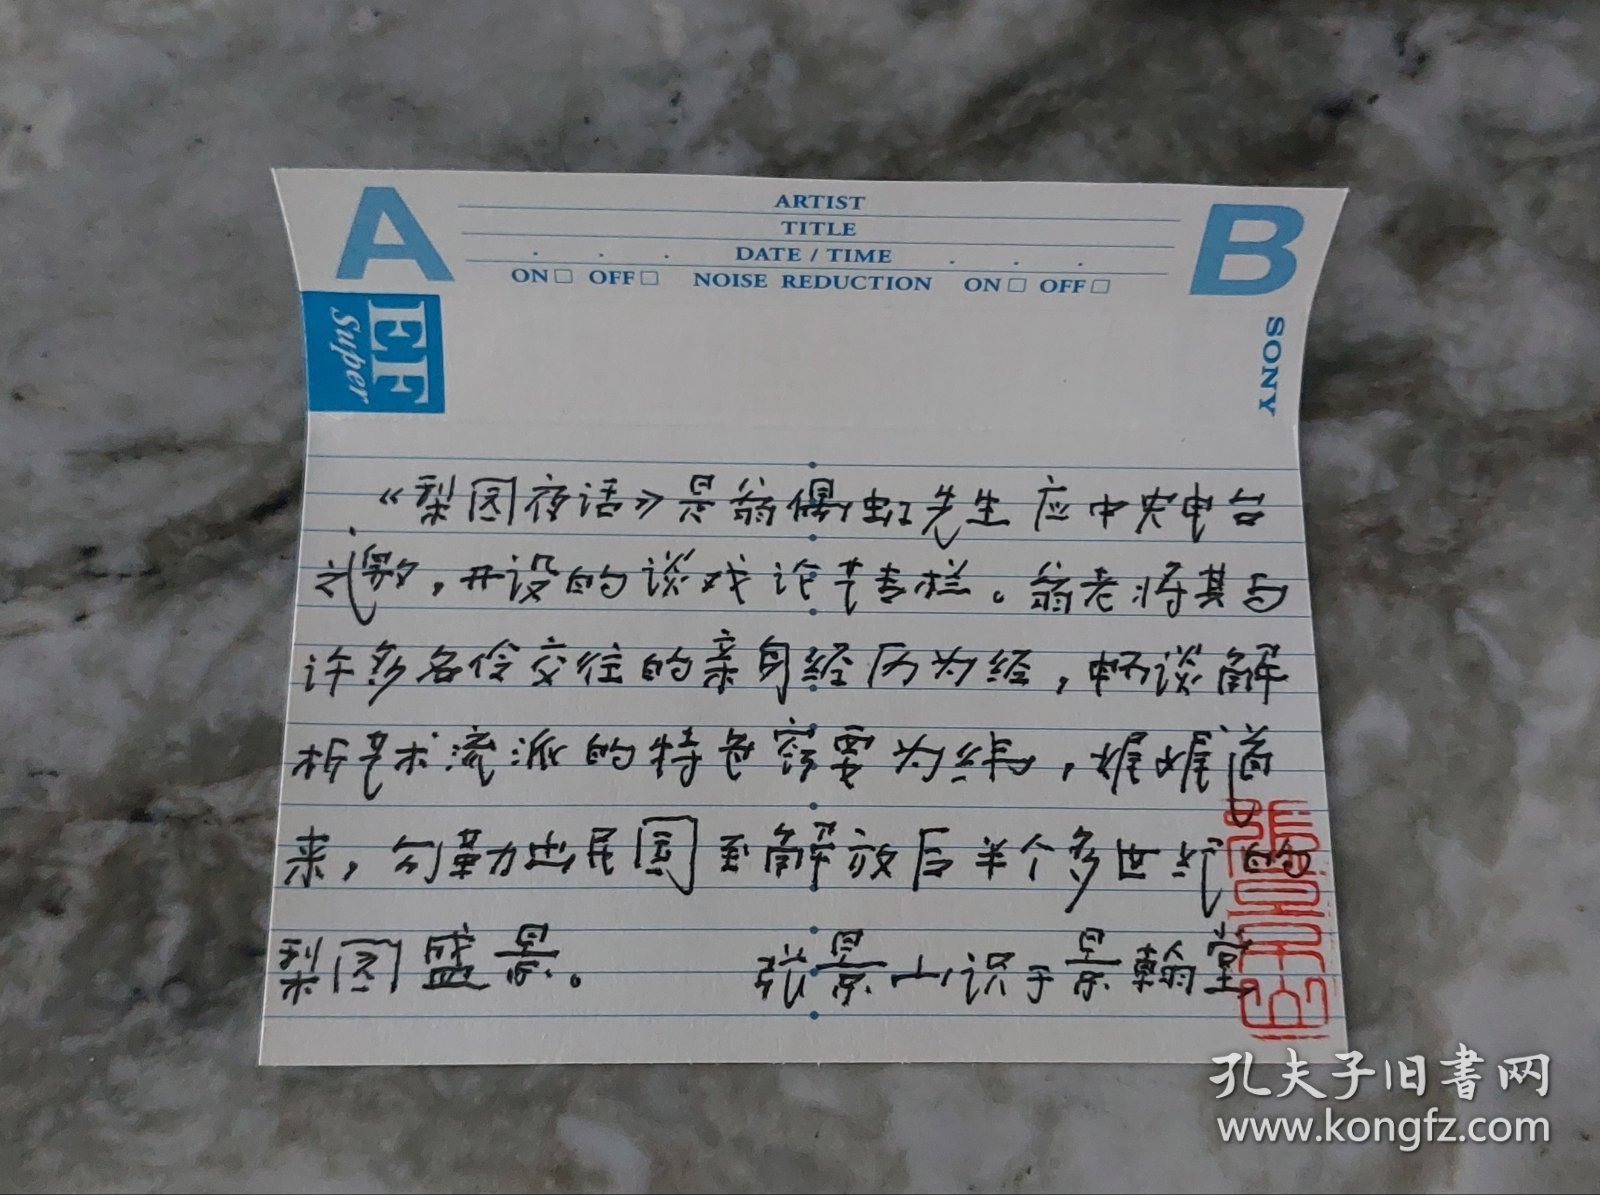 A
ARTIST
B
TITLE
DATE / TIME
ON□ OFF□ NOISE REDUCTION ON□ OFF□
EF
Super
SONY
《梨园夜话》是翁偶虹先生应中央电台
之邀，开设的谈戏论艺专栏。翁老将其与
许多名伶交往的亲身经历为经，畅谈解
析艺术流派的特色窍要为纬，娓娓道
来，勾勒出民国至解放后半个多世纪的
梨园盛景。 张景山识于景翰堂
孔夫子旧書网
www.kongfz.com